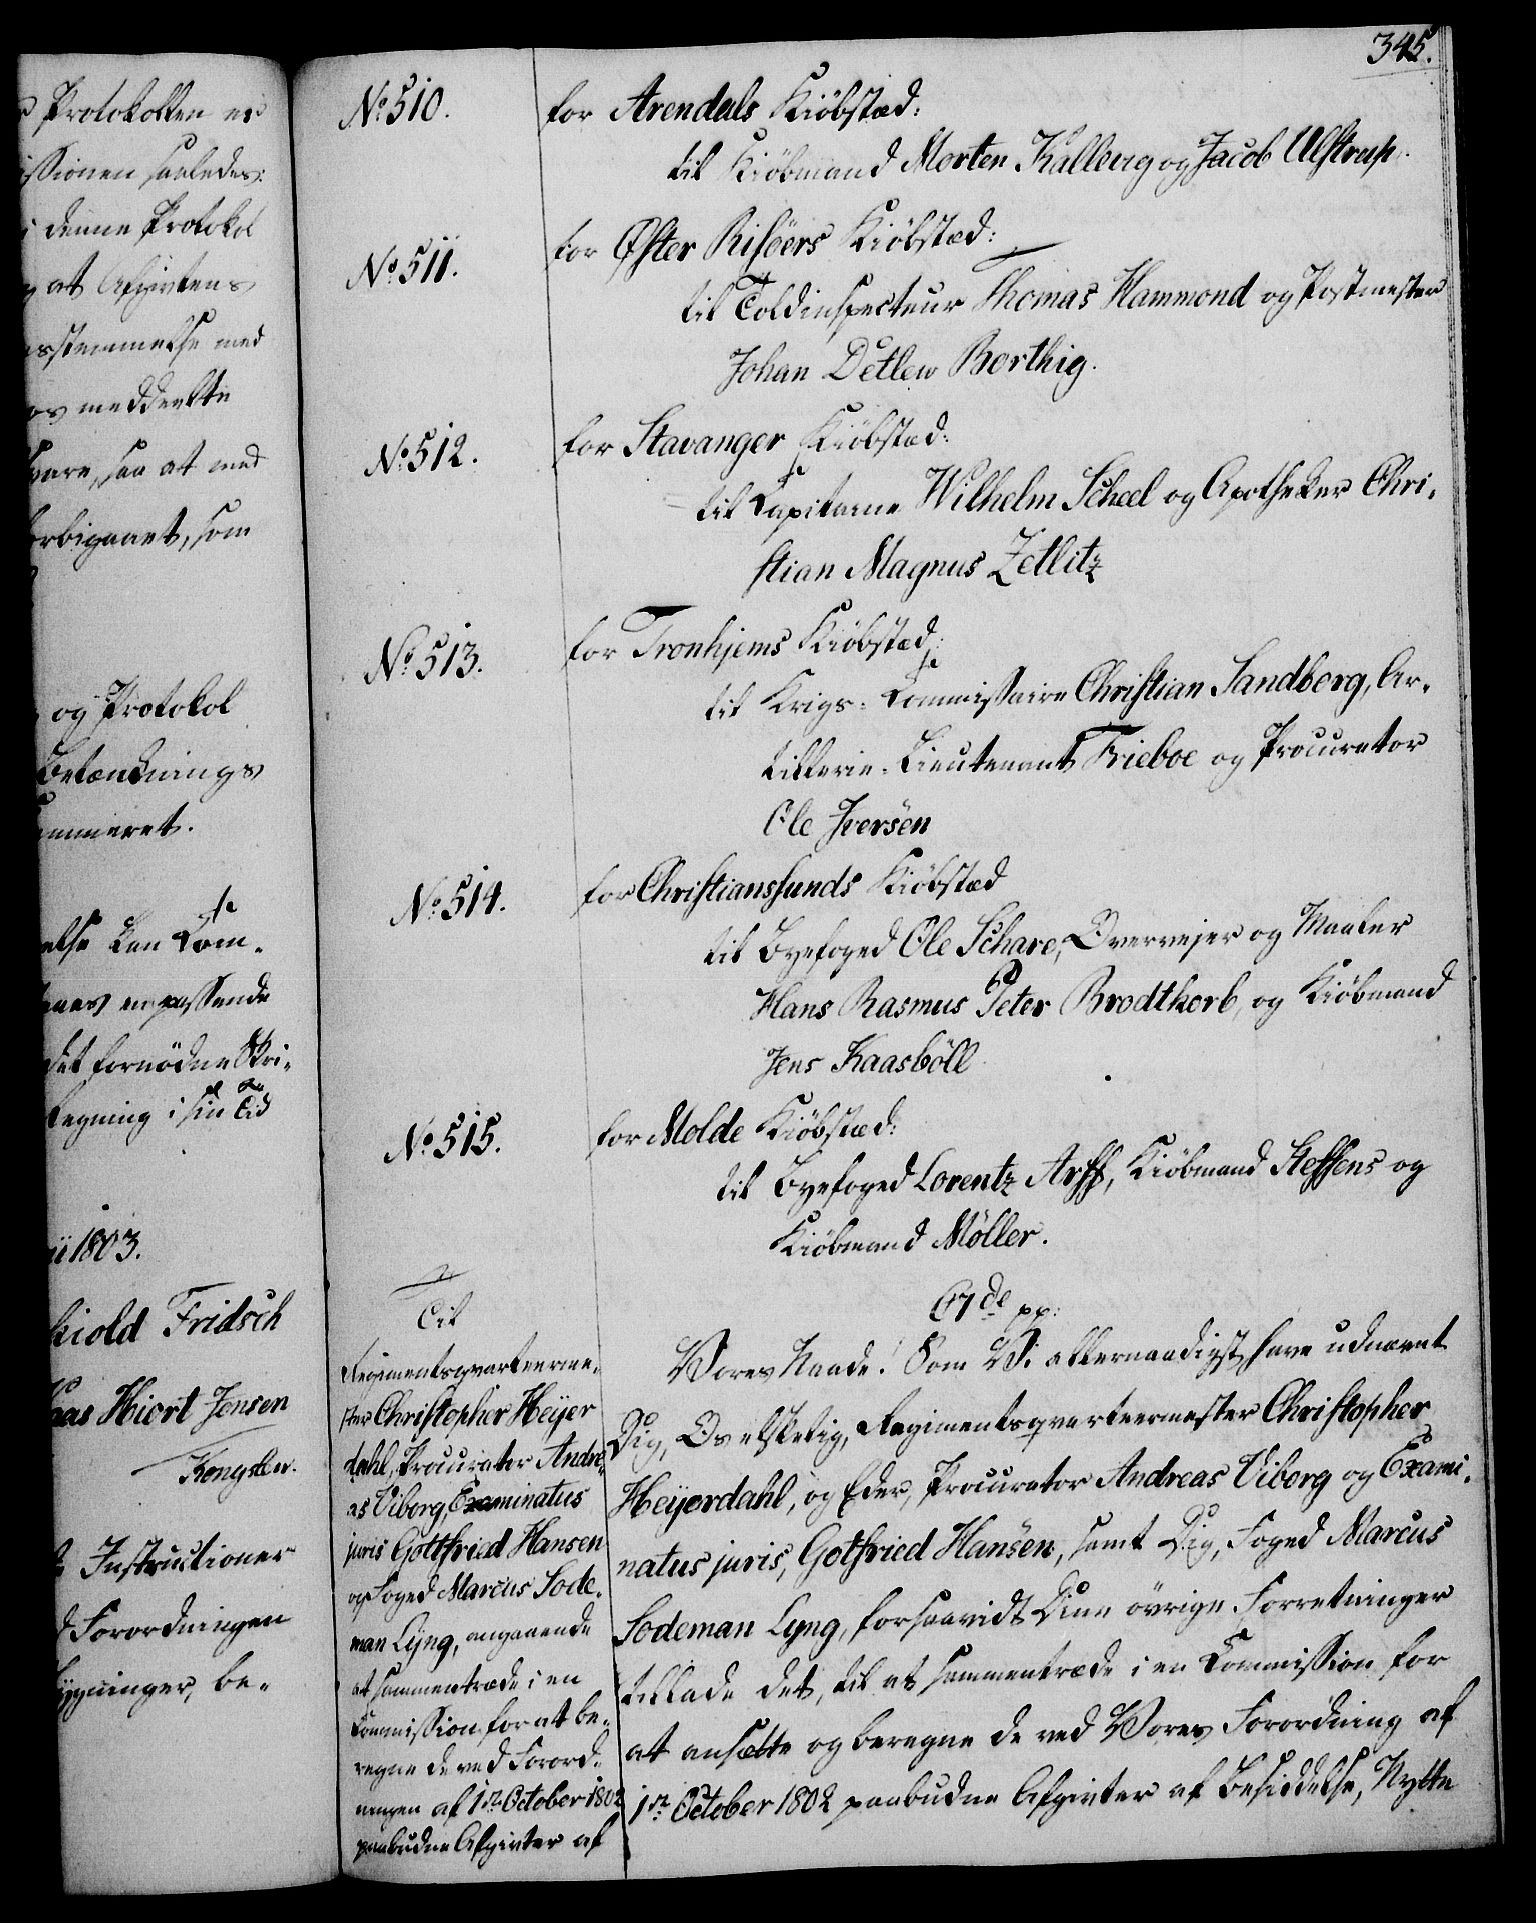 Protokollen er
ssionen saaledes:
denne Protokol
at Afgivtens
sstemmelse med
meddeelte
vare, saa at med
orbigaaet, som
og Protokol
Betænknings
ummeret.
else kan Com-
anes en passende
det fornödne Skri-
Regning i sin Tid
ii 1803.
kiold Fridsch
aas Hiort Jensen
Kongslew.
Instructioner
Forordningen
ygninger, be-
345.
No. 510. for Arendals Kiöbstæd:
til Kiöbmand Morten Kallevig og Jacob Ulstrup.
No. 511. for Öster Risöers Kiöbstæd:
til Toldinspecteur Thomas Hammond og Postmester
Johan Detlew Berthig.
No. 512. for Stavanger Kiöbstæd:
til Capitaine Wilhelm Scheel og Apotheker Chri-
stian Magnus Zetlitz
No. 513. for Tronhjems Kiöbstæd:
til Krigs-Commissaire Christian Sandberg, Ar-
tillerie-Lieutenant Frieboe og Procurator
Ole Iversen
No. 514. for Christianssunds Kiöbstæd
til Byefoged Ole Schare, Overvejer og Maaler
Hans Rasmus Peter Brodtkorb, og Kiöbmand
Jens Kaasböll
No. 515. for Molde Kiöbstæd:
til Byefoged Lorentz Arff, Kiöbmand Steffens og
Kiöbmand Möller.
Til
Regimentsqvarteerme-
ster Christopher Heÿer
dahl, Procurator Andre-
as Viborg, Examinatus
juris Gottfried Hansen
og Foged Marcus Sode-
man Lÿng, angaaende
at sammentræde i en
Commission for at be-
regne de ved Forord-
ningen af 1ste October 1802
paabudne Afgivter af
C7de pp:
Vores Naade! Som Vi allernaadigst have udnævnt
Dig, Os elskelig, Regimentsqvarteermester Christopher
Heÿerdahl, og Eder, Procurator Andreas Viborg og Exami-
natus juris, Gotfried Hansen, samt Dig, Foged Marcus
Sodeman Lyng, forsaavidt Dine övrige Forretninger
tillade det, til at sammentræde i en Commission for
at ansætte og beregne de ved Vores Forordning af
1ste October 1802 paabudne Afgivter af Besiddelse, Nytte